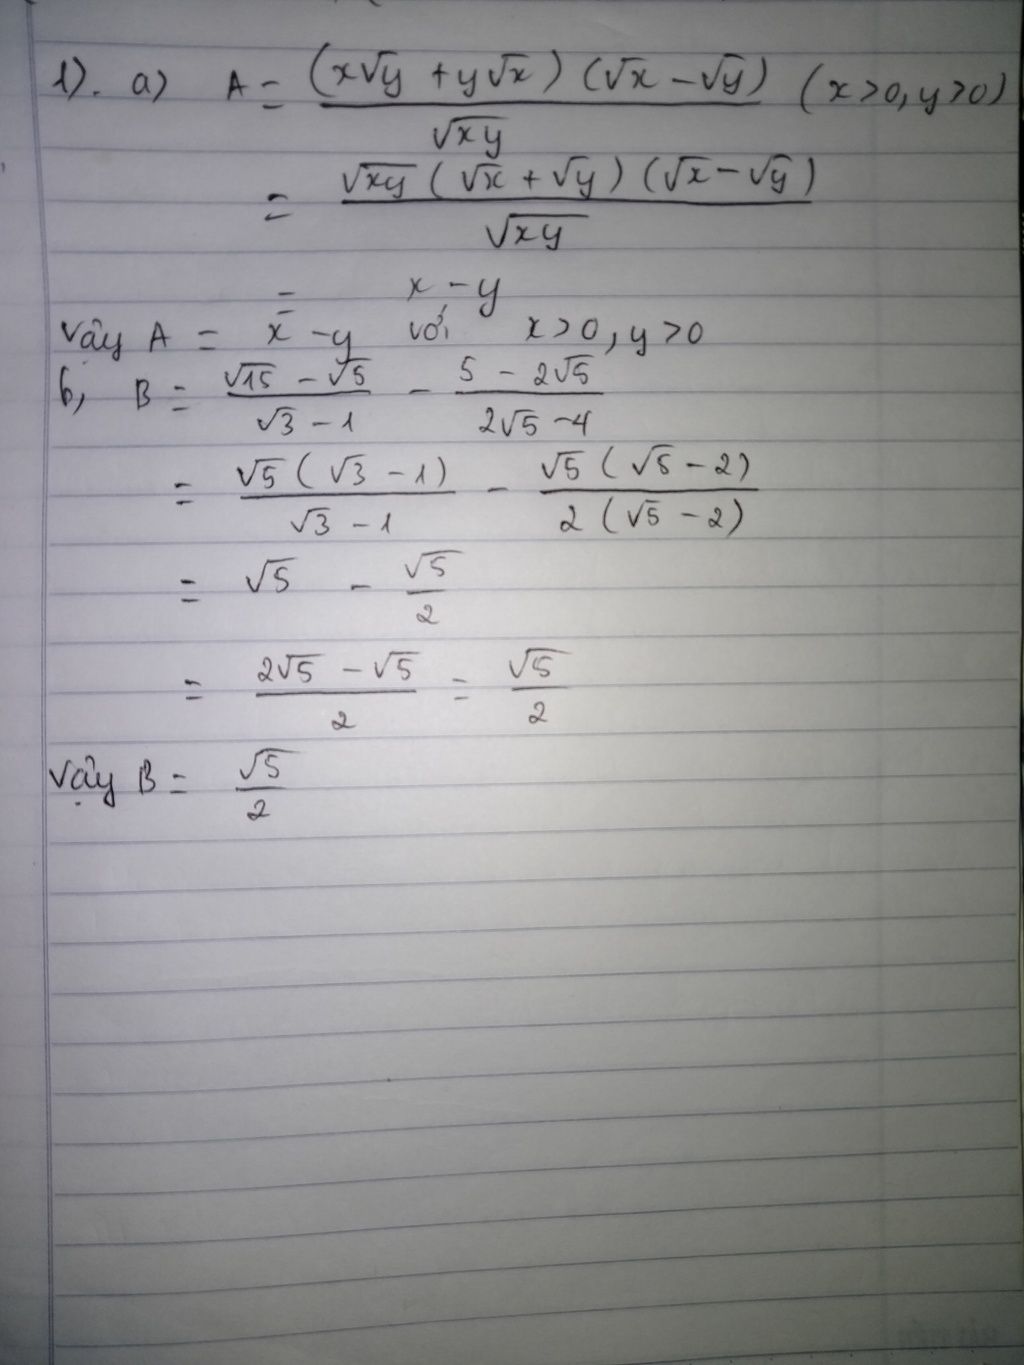 1). a) A = (x√y + y√x) (√x - √y) / √xy (x>0, y>0)
= √xy (√x + √y) (√x - √y) / √xy
= x - y
Vậy A = x - y với x>0, y>0
b, B = (√15 - √5) / (√3 - 1) - (5 - 2√5) / (2√5 - 4)
= √5 (√3 - 1) / (√3 - 1) - √5 (√5 - 2) / 2 (√5 - 2)
= √5 - √5 / 2
= (2√5 - √5) / 2 = √5 / 2
Vậy B = √5 / 2